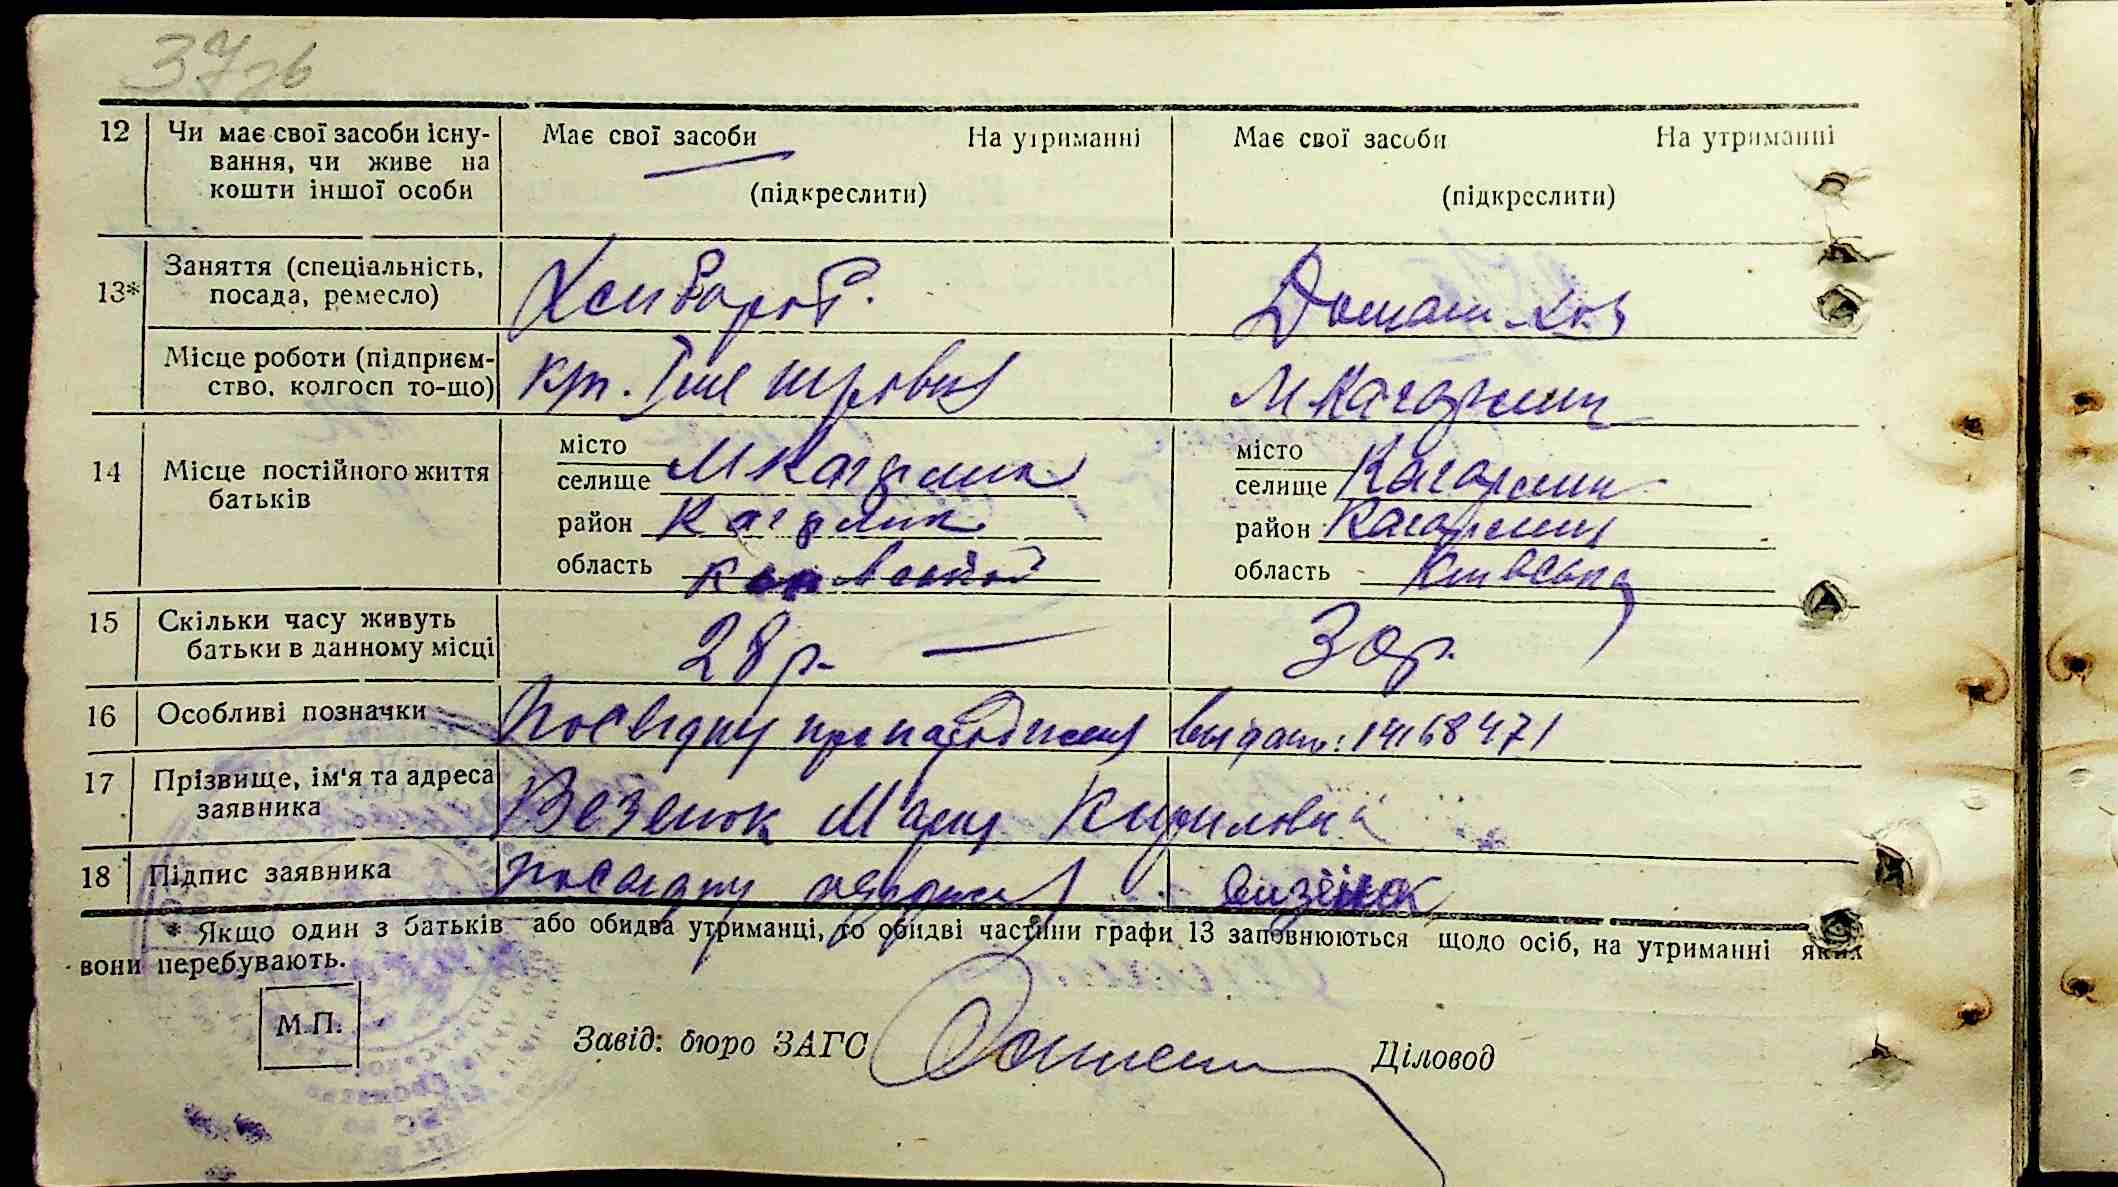 37зв
12 Чи має свої засоби існу- Має свої засоби На утриманні Має свої засоби На утриманні
вання, чи живе на
кошти іншої особи (підкреслити) (підкреслити)
Заняття (спеціальність, Домаш. хоз
13* посада, ремесло)
Місце роботи (підприєм- М Кагарлик
ство, колгосп то-що)
місто місто
14 Місце постійного життя селище М Кагарлик селище Кагарлик
батьків район Кагарлик район Кагарлик
область область Київська
15 Скільки часу живуть 28 р. — 30 р.
батьки в данному місці
16 Особливі позначки Посвідку про народження видано: 14168471
17 Прізвище, ім'я та адреса Везенюк Мария Кириловна
заявника
18 Підпис заявника Посвідку одержил
* Якщо один з батьків або обидва утриманці, то обидві частини графи 13 заповнюються щодо осіб, на утриманні яких
вони перебувають.
М.П.
Завід: бюро ЗАГС Діловод